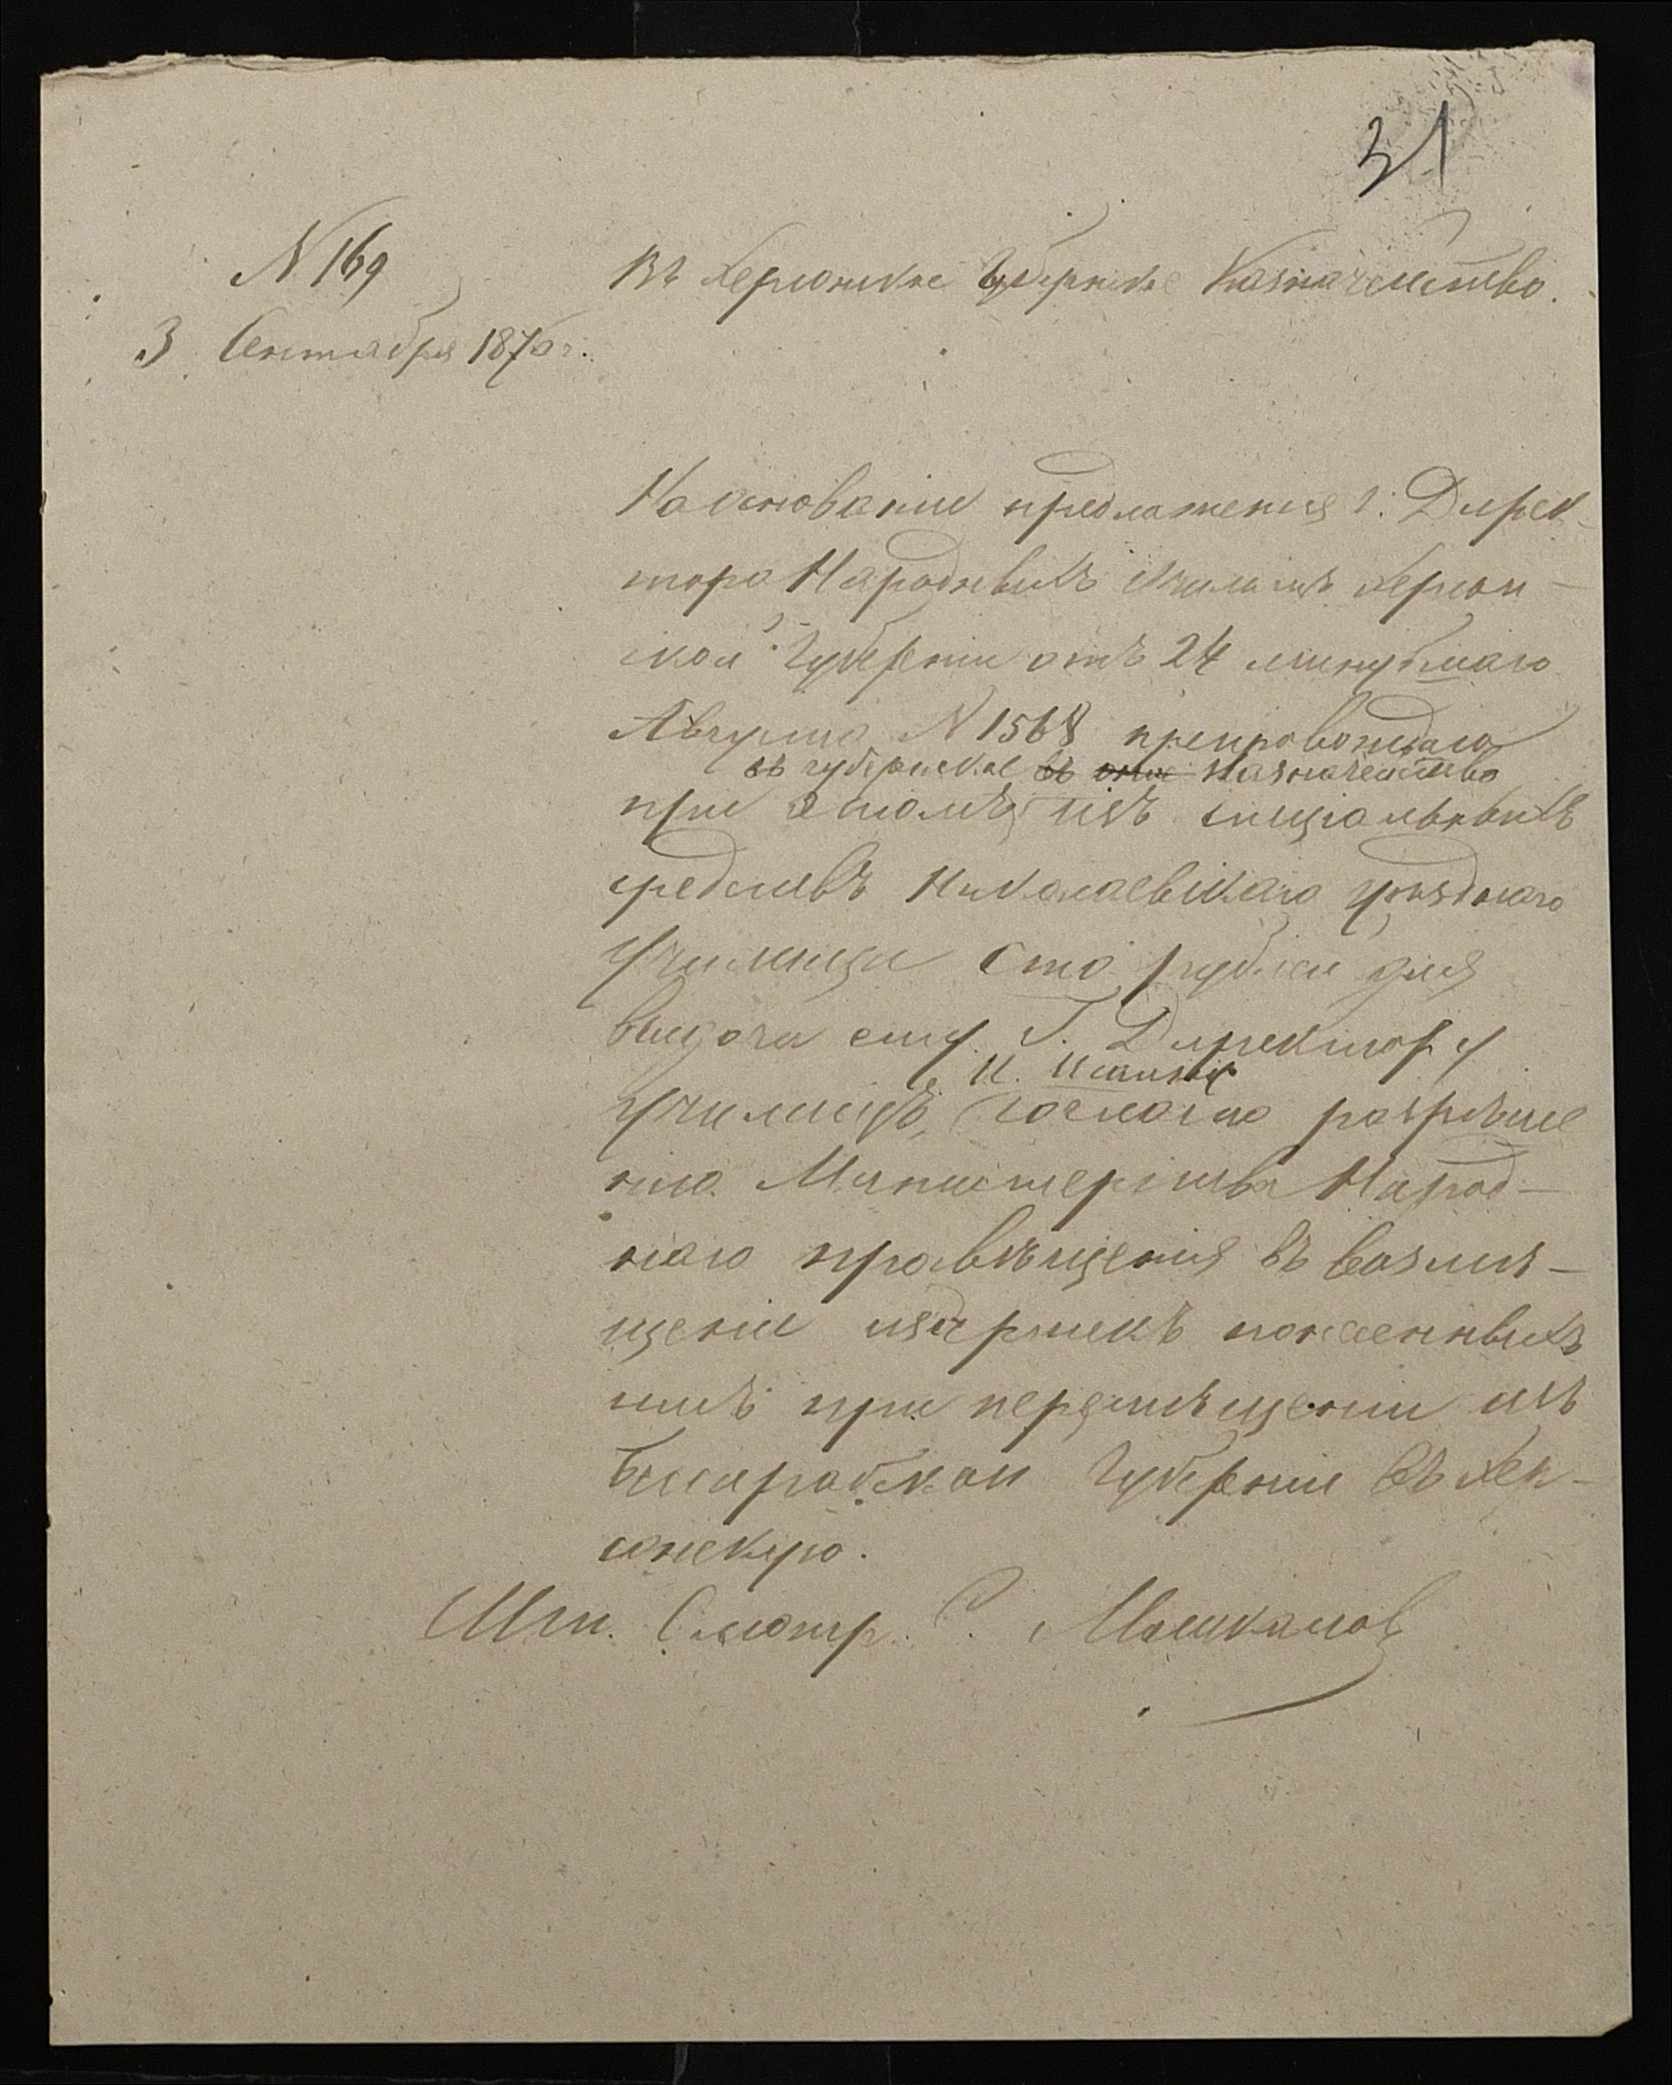 31
N 169
Въ Херсонское Губернское Казначейство.
3 Сентября 1876 г.
На основаніи предложенія г. Дирек-
тора Народныхъ Училищъ Херсон-
ской Губерніи отъ 24 минувшаго
Августа N 1568 препровождаю
въ губернское въ оное Казначейство
при этомъ изъ спеціальныхъ
средствъ Николаевскаго уѣзднаго
училища сто рублей для
выдачи ему Г. Директору
Училищъ, согласно разрѣше
нію Министерства Народ-
наго просвѣщенія въ возмѣ-
щеніи издержекъ понесенныхъ
имъ при перемѣщеніи изъ
Бессарабской Губерніи въ Хер-
сонскую.
Шт. Смотр.